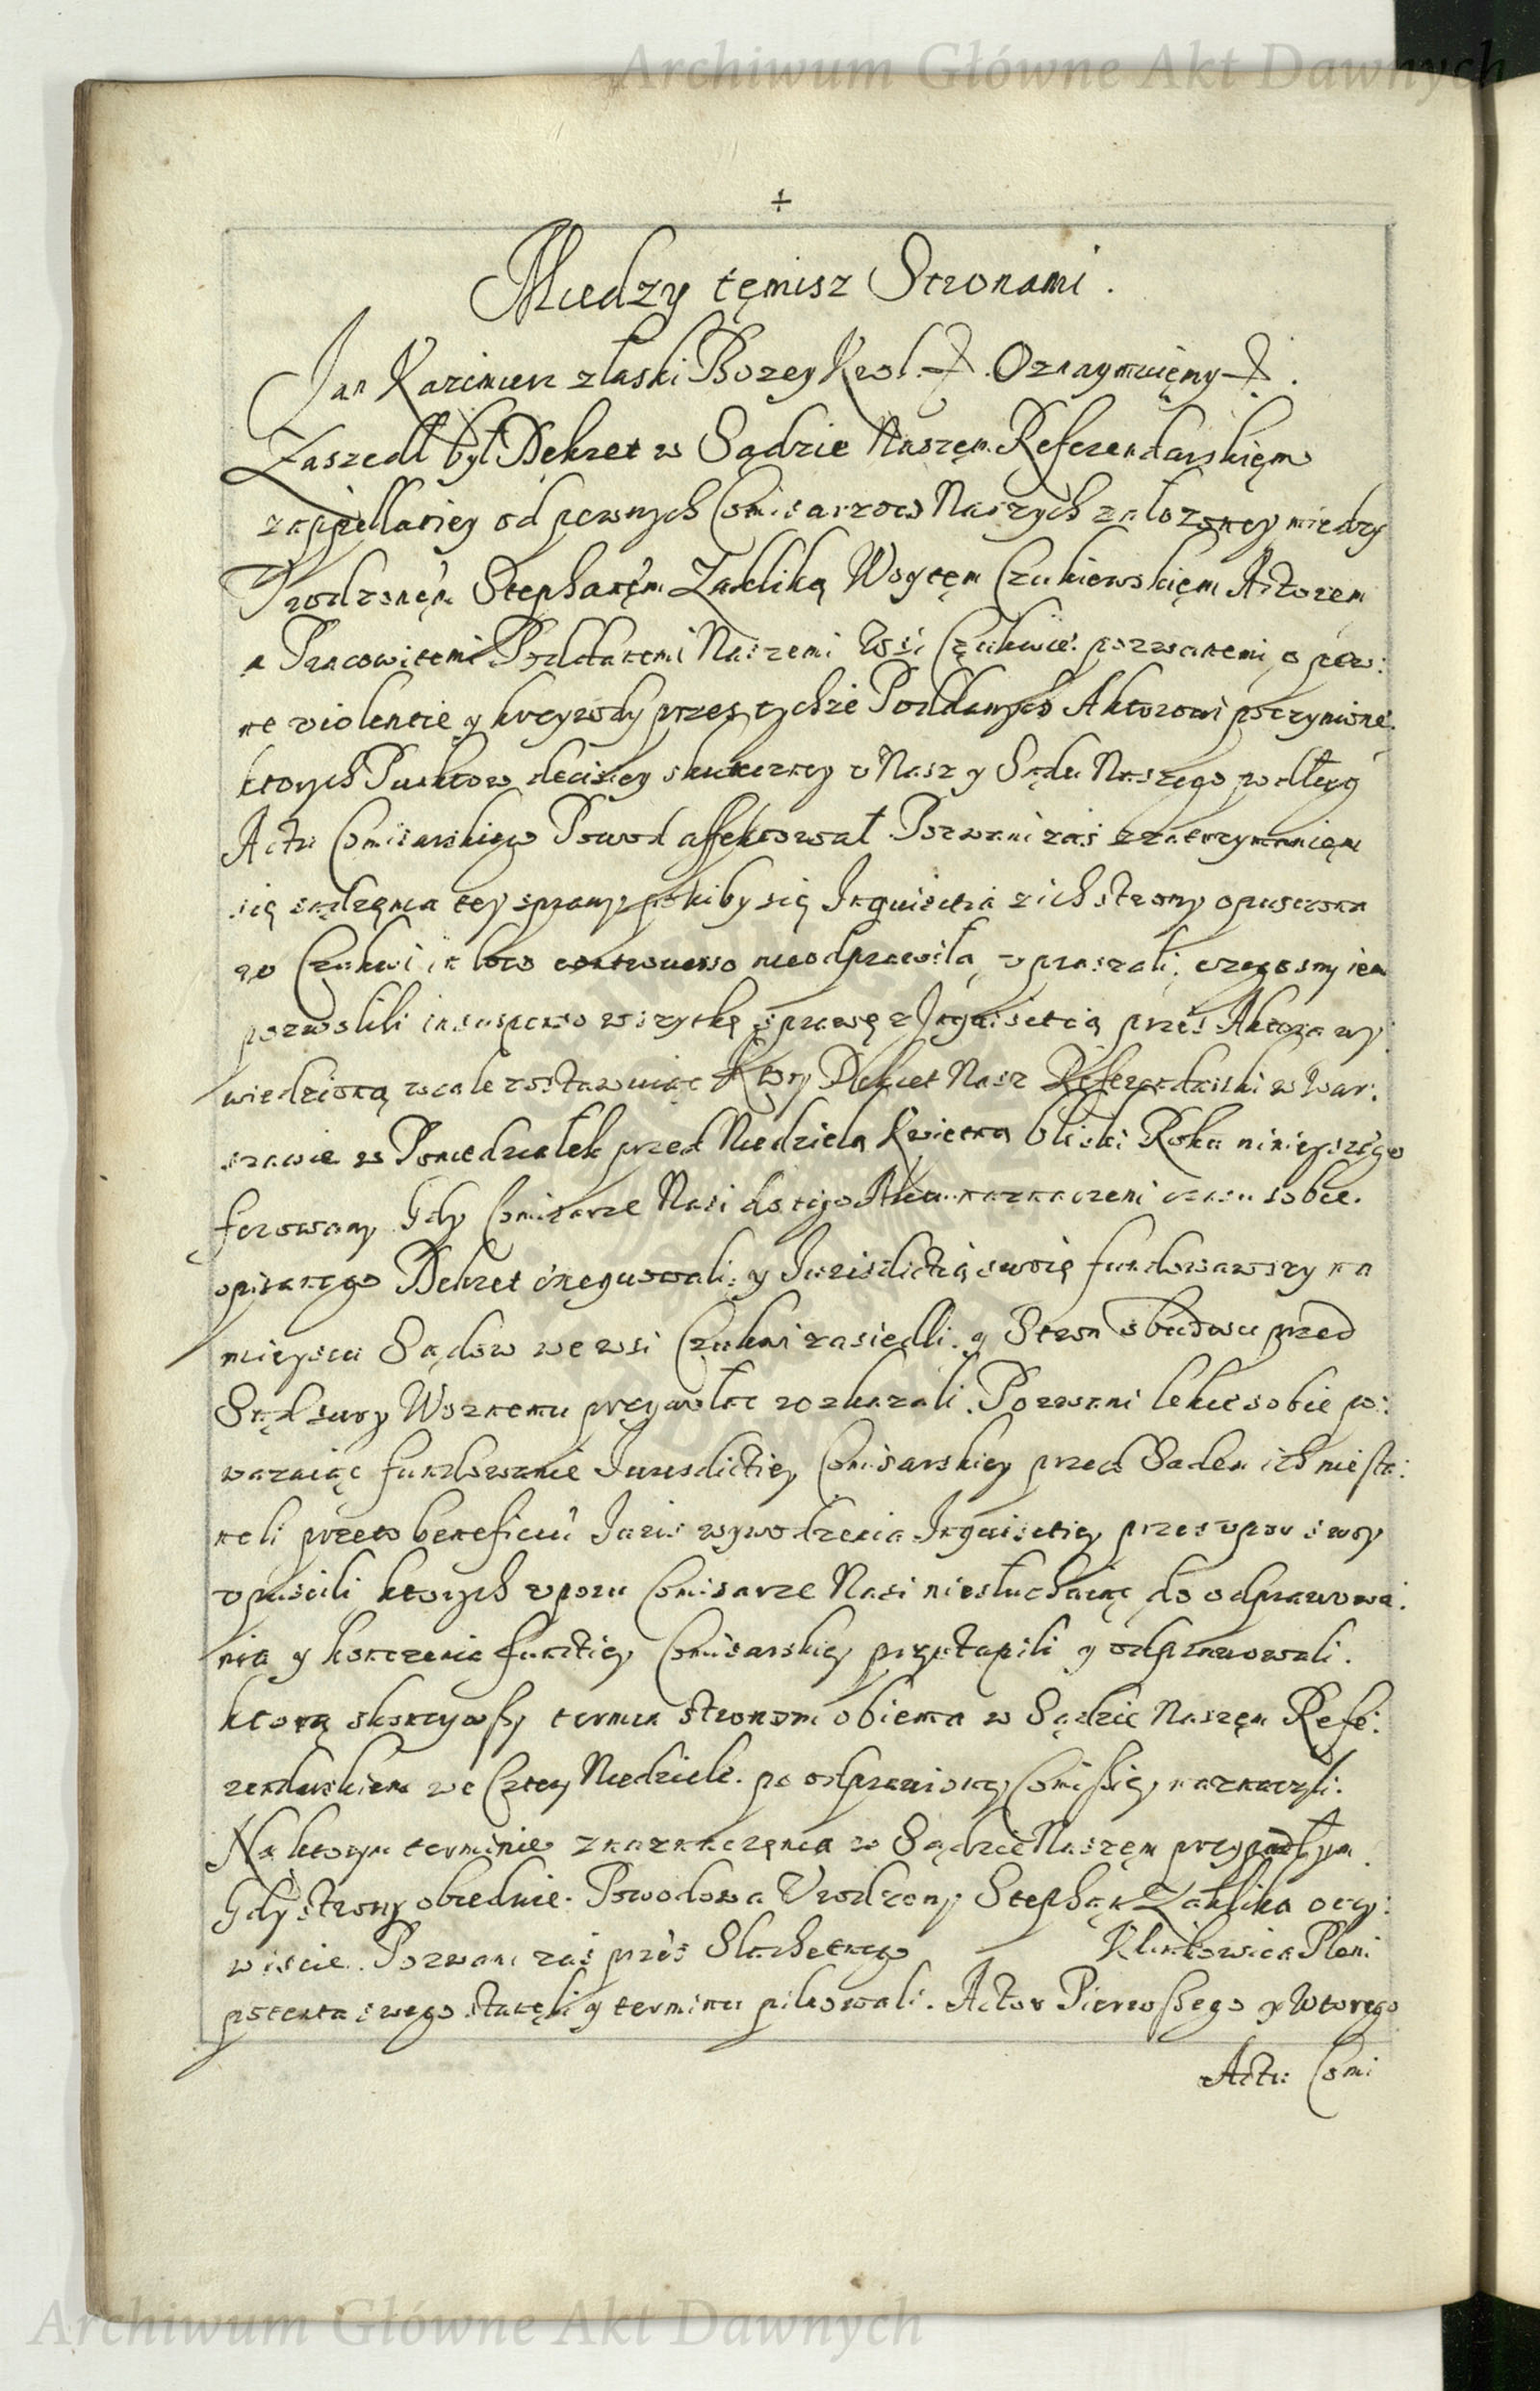 Archiwum Główne Akt Dawnych
Miedzy tęmisz Stronami.
Jan Kazimierz złaski Bozey Krol. Oznaymuięmy.
Zaszedł był Dekret w Sądzie Naszęm Referendarskięm
zappellatiey od pewnych Comisarzow Naszych założoney miedzy
Vrodzonęm Stephanęm Zakliką Woytęm Czukiewskięm Actorem
a Pracowitemi Poddanemi Naszemi Wsi Czukwie pozwanemi, o pew:
ne violentie y krzywdy przes tychże Poddanych Aktorowi poczynione.
ktorych Punktow decisiey skuteczney v Nasz y Sądu Naszego według
Actu Comisarskiego Powod affektował. Pozwani zaś zzatrzymanięm
się sądzęnia tey sprawy, pokiby się Inquisitia zich strony opusczona
w Czukwi in loco controuerso nieodprawiła, vpraszali, czegosmy iem
pozwolili in suspenso wszytkę sprawę z Inquisitią przes Aktora wy:
wiedzioną wcale zostawuiąc Ktory Dekret Nasz Referendarski w War:
szawie w Poniedziałek przed Niedzielą Kwietną bliski Roku ninieyszégo
ferowany. Gdy Comisarze Nasi do tego Aktu naznaczeni czasu sobie.
opisanego Dekret exequowali: y Jurisdictią swoię fundowawszy na
mieyscu Sądow we wsi Czukwi zasiedli. y Stron obudwu przed
Sąd swoy Woznemu przywołac rozkazali. Pozwani lekce sobie po:
wazaiąc fundowanie Jurisdictiey Comisarskiey przed Sadem ich niesta:
neli przeto beneficiū Juris wywodzenia Inquisitiey przes vpor swoy
vpuscili ktorych vporu Comisarze Nasi niesłuchaiąc do odprawowa:
nia y konczenia funktiey Comisarskiey przystąpili y odprawowali.
ktorą skonczywszy termin Stronom obiema w Sądzie Naszęm Refe:
rendarskiem we Cztery Niedziele. po odprawioney Comissiey naznaczyli.
Na ktorym terminie znaznaczęnia w Sądzie Naszęm przypadłym
Gdy strony obiedwie. Powodowa Vrodzony Stephan Zaklika oczy:
wiscie. Pozwana zaś przes Slachetnego Klimkowica Pleni
potenta swego stanęli y terminu pilnowali. Actor Pierwszego y Wtorego
Actu Comi
Archiwum Główne Akt Dawnych